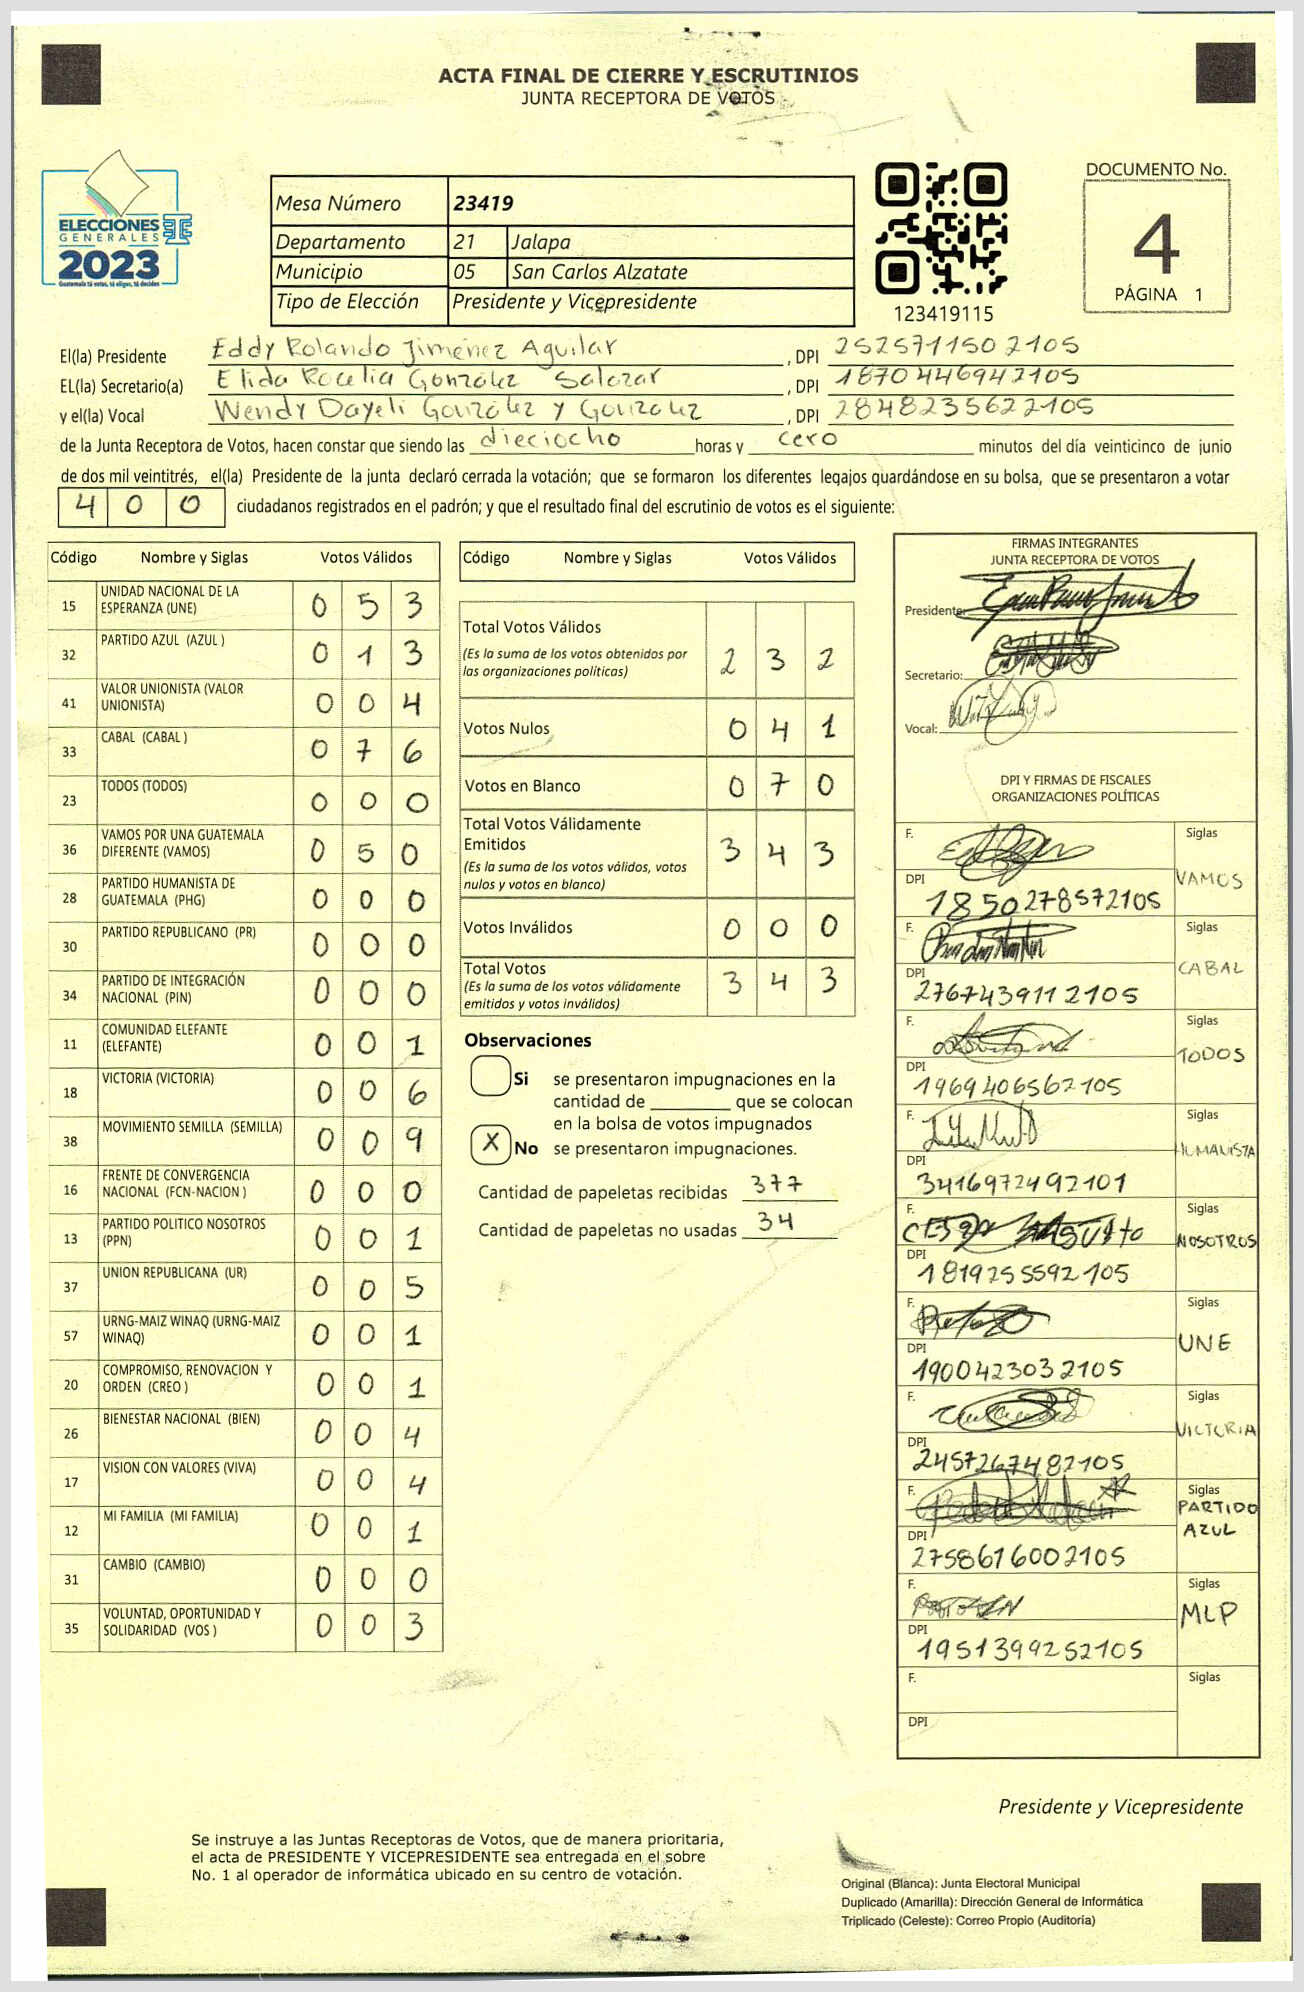 ACTA FINAL DE CIERRE Y ESCRUTINIOS
JUNTA RECEPTORA DE VOTOS
ELECCIONES
GENERALES
2023
Guatemala tú votas, tú eliges, tú decides
Mesa Número 23419
Departamento 21 Jalapa
Municipio 05 San Carlos Alzatate
Tipo de Elección Presidente y Vicepresidente
123419115
DOCUMENTO No.
4
PÁGINA 1
El(la) Presidente Eddy Rolando Jiménez Aguilar, DPI 2525711502105
EL(la) Secretario(a) Elida Rocelia González Salazar, DPI 1870446942105
y el(la) Vocal Wendy Dayeli González y González, DPI 2848235622105
de la Junta Receptora de Votos, hacen constar que siendo las dieciocho horas y cero minutos del día veinticinco de junio
de dos mil veintitrés, el(la) Presidente de la junta declaró cerrada la votación; que se formaron los diferentes legajos quardándose en su bolsa, que se presentaron a votar
400 ciudadanos registrados en el padrón; y que el resultado final del escrutinio de votos es el siguiente:
Código Nombre y Siglas Votos Válidos
15 UNIDAD NACIONAL DE LA ESPERANZA (UNE) 0 5 3
32 PARTIDO AZUL (AZUL ) 0 1 3
41 VALOR UNIONISTA (VALOR UNIONISTA) 0 0 4
33 CABAL (CABAL ) 0 7 6
23 TODOS (TODOS) 0 0 0
36 VAMOS POR UNA GUATEMALA DIFERENTE (VAMOS) 0 5 0
28 PARTIDO HUMANISTA DE GUATEMALA (PHG) 0 0 0
30 PARTIDO REPUBLICANO (PR) 0 0 0
34 PARTIDO DE INTEGRACIÓN NACIONAL (PIN) 0 0 0
11 COMUNIDAD ELEFANTE (ELEFANTE) 0 0 1
18 VICTORIA (VICTORIA) 0 0 6
38 MOVIMIENTO SEMILLA (SEMILLA) 0 0 9
16 FRENTE DE CONVERGENCIA NACIONAL (FCN-NACION ) 0 0 0
13 PARTIDO POLITICO NOSOTROS (PPN) 0 0 1
37 UNION REPUBLICANA (UR) 0 0 5
57 URNG-MAIZ WINAQ (URNG-MAIZ WINAQ) 0 0 1
20 COMPROMISO, RENOVACION Y ORDEN (CREO ) 0 0 1
26 BIENESTAR NACIONAL (BIEN) 0 0 4
17 VISION CON VALORES (VIVA) 0 0 4
12 MI FAMILIA (MI FAMILIA) 0 0 1
31 CAMBIO (CAMBIO) 0 0 0
35 VOLUNTAD, OPORTUNIDAD Y SOLIDARIDAD (VOS ) 0 0 3
Código Nombre y Siglas Votos Válidos
Total Votos Válidos 2 3 2
(Es la suma de los votos obtenidos por
las organizaciones políticas)
Votos Nulos 0 4 1
Votos en Blanco 0 7 0
Total Votos Válidamente
Emitidos 3 4 3
(Es la suma de los votos válidos, votos
nulos y votos en blanco)
Votos Inválidos 0 0 0
Total Votos 3 4 3
(Es la suma de los votos válidamente
emitidos y votos inválidos)
Observaciones
Si se presentaron impugnaciones en la
cantidad de ________ que se colocan
en la bolsa de votos impugnados
X No se presentaron impugnaciones.
Cantidad de papeletas recibidas 377
Cantidad de papeletas no usadas 34
FIRMAS INTEGRANTES
JUNTA RECEPTORA DE VOTOS
Presidente:
Secretario:
Vocal:
DPI Y FIRMAS DE FISCALES
ORGANIZACIONES POLÍTICAS
F. Siglas VAMOS
DPI 1850278572105
F. Siglas CABAL
DPI 2767439112105
F. Siglas TODOS
DPI 1969406562105
F. Siglas HUMANISTA
DPI 3416972492101
F. Siglas NOSOTROS
DPI 1819255592105
F. Siglas UNE
DPI 1900423032105
F. Siglas VICTORIA
DPI 2457267482105
F. Siglas PARTIDO AZUL
DPI 2758616002105
F. Siglas MLP
DPI 1951399252105
F. Siglas
DPI
Presidente y Vicepresidente
Se instruye a las Juntas Receptoras de Votos, que de manera prioritaria,
el acta de PRESIDENTE Y VICEPRESIDENTE sea entregada en el sobre
No. 1 al operador de informática ubicado en su centro de votación.
Original (Blanca): Junta Electoral Municipal
Duplicado (Amarilla): Dirección General de Informática
Triplicado (Celeste): Correo Propio (Auditoría)